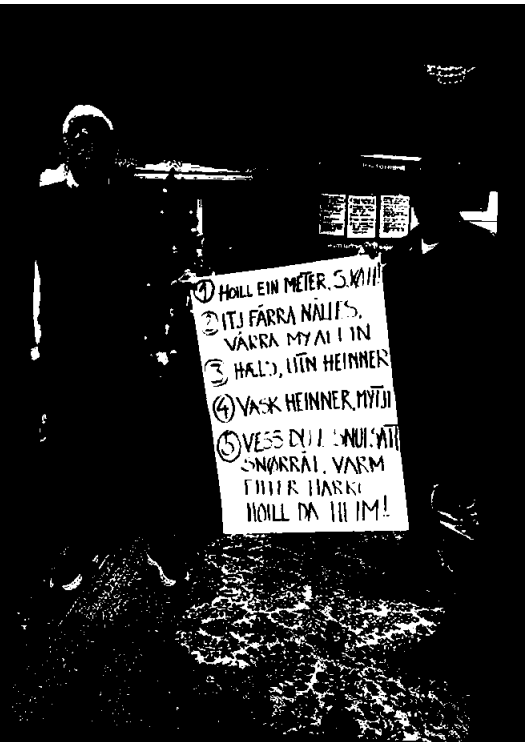 ① HOILL EIN METER, SJØLL!
② ITJ FÄRRA NÅLLES,
VÄRRA MY ALLIN
③ HÆLS, UTN HEINNER
④ VASK HEINNER, MYTJI
⑤ VESS DU E SNUISÅTT
SNØRRÅT, VARM
EILLER HARKE
HOILL DÆ HEIM!